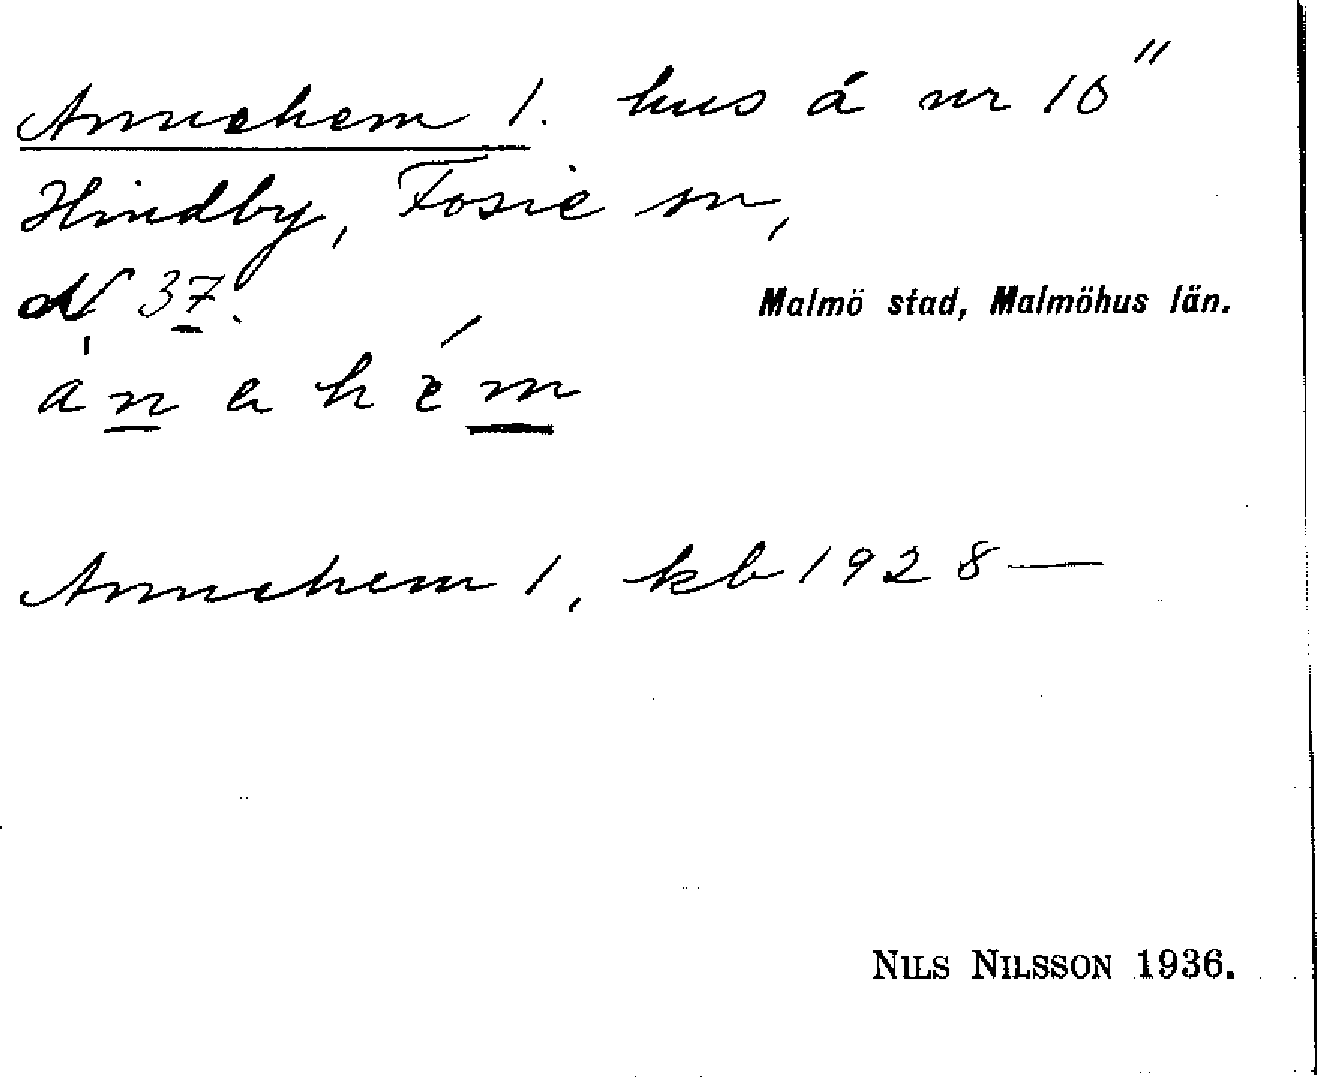 Annehem 1. hus å nr 10"
Hindby, Fosie sn,
N 37.
Malmö stad, Malmöhus län.
ánahém
Annehem 1, kb 1928—
NILS NILSSON 1936.